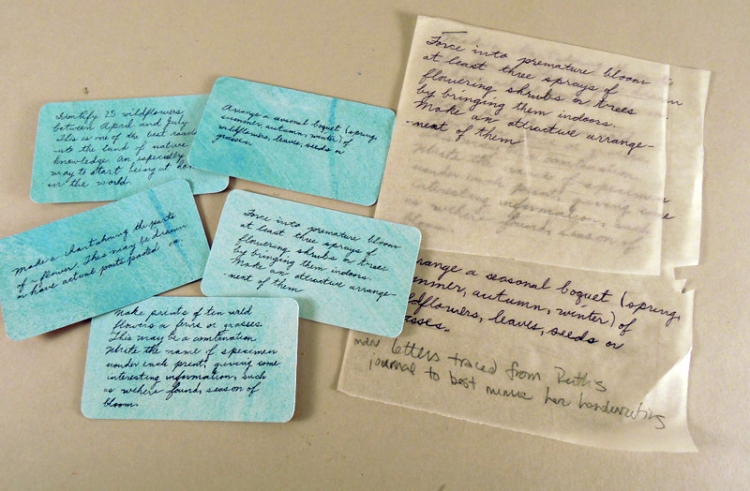 Identify 25 wildflowers
between April and July
This is one of the best roads
into the land of nature
knowledge. An especially
way to start being at home
in the world.
Arrange a seasonal boquet (spring,
summer, autumn, winter) of
wildflowers, leaves, seeds or
grasses.
Make a chart showing the parts
of a flower. This may be drawn
or have actual parts pasted on.
Force into premature bloom
at least three sprays of
flowering shrubs or trees
by bringing them indoors.
Make an attractive arrange-
-ment of them
Make prints of ten wild
flowers or ferns or grasses.
This may be a combination
Write the name of specimen
under each print, giving some
interesting information, such
as where found, season of
bloom.
Force into premature bloom
at least three sprays of
flowering shrubs or trees
by bringing them indoors.
Make an attractive arrange-
-ment of them
Write the name of specimen
under each print, giving some
interesting information, such
as where found, season of
bloom.
range a seasonal boquet (spring,
mmer, autumn, winter) of
ldflowers, leaves, seeds or
sses.
letters traced from Ruth's
journal to best mimic her handwriting